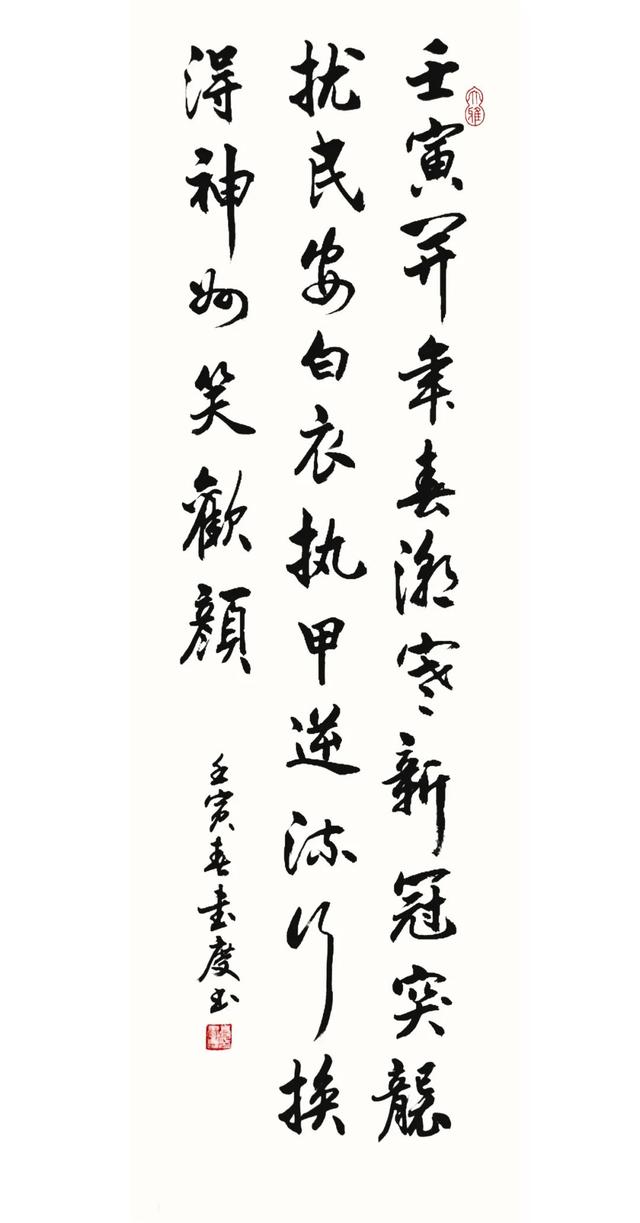 壬寅开年春潮寒新冠突襲
扰民安白衣执甲逆流行换
淂神州笑歡顔
壬寅春書度书
大雅